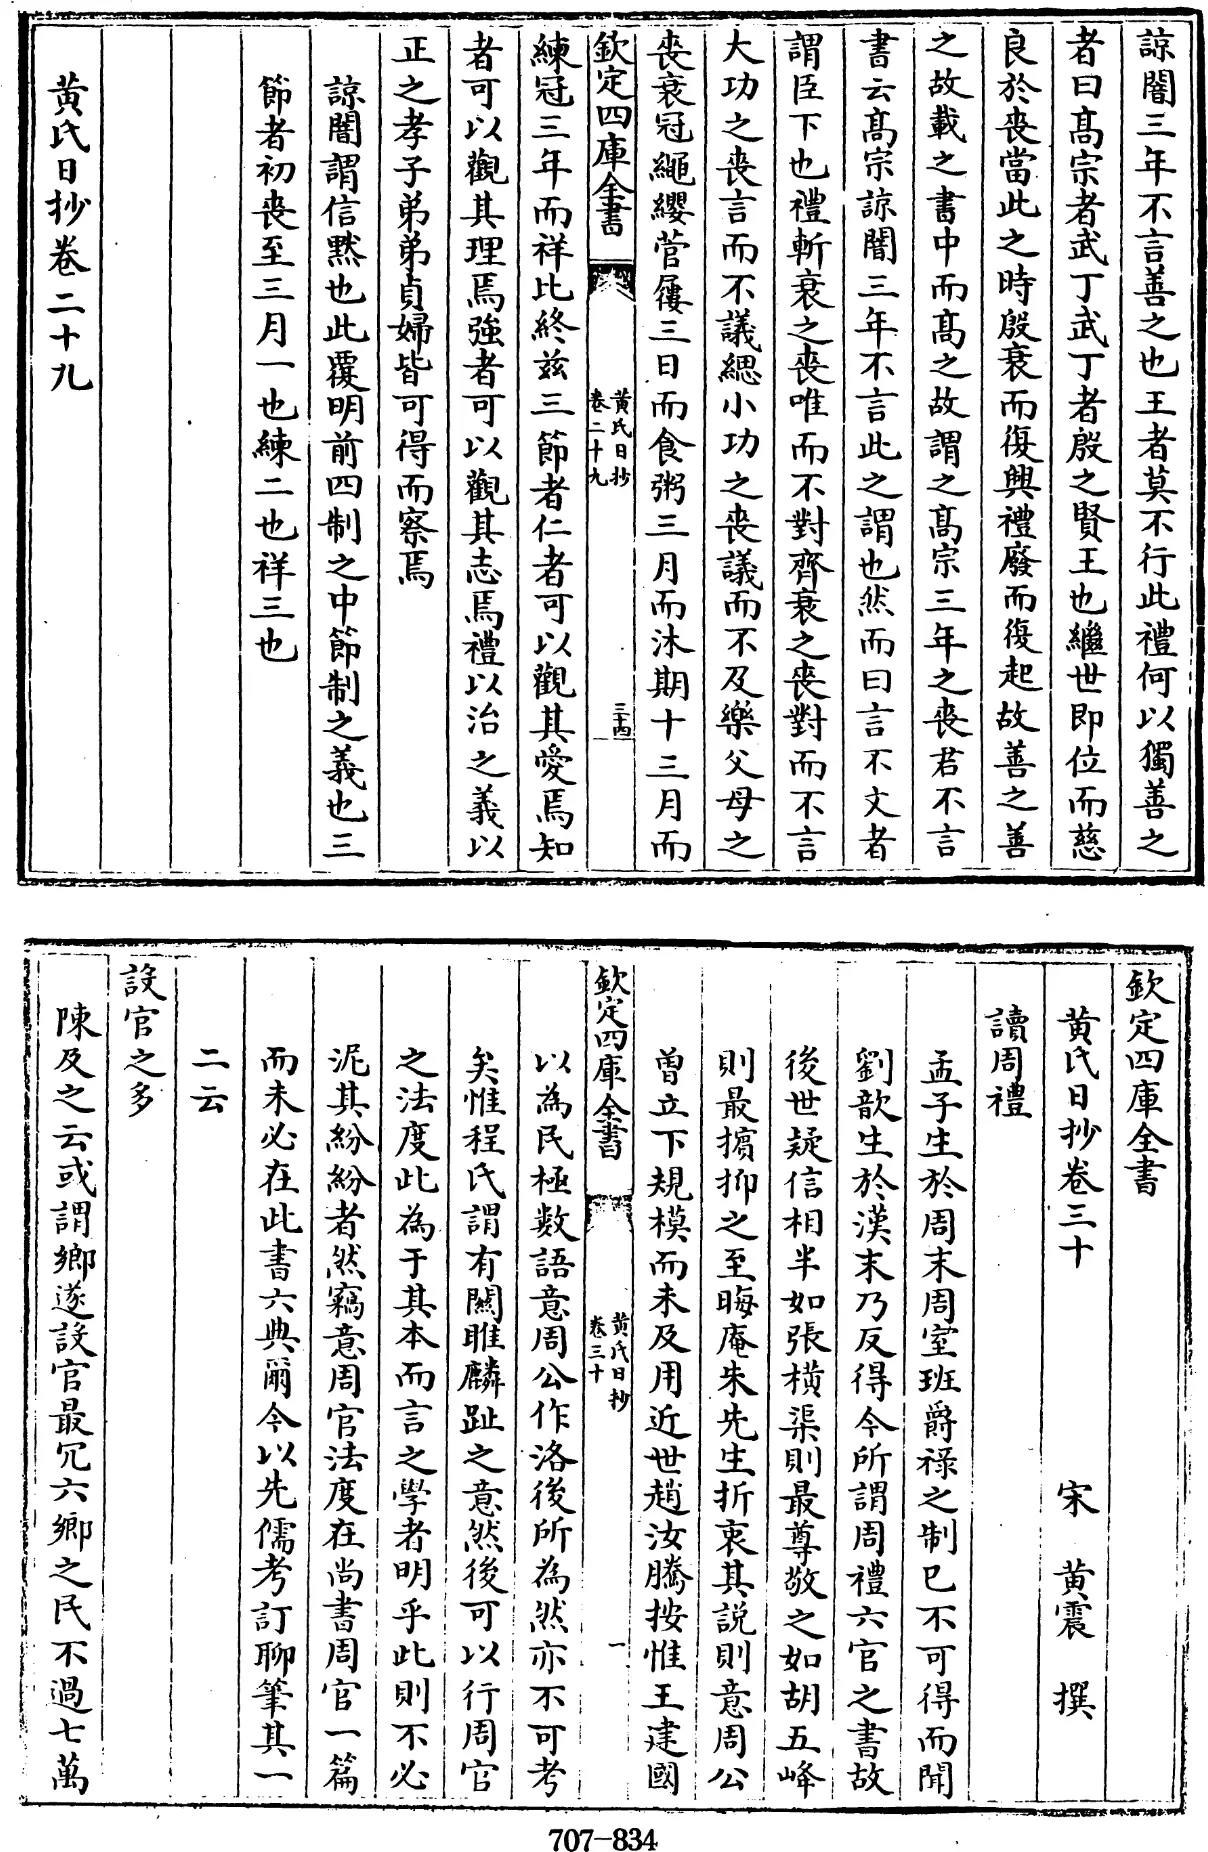 諒闇三年不言善之也王者莫不行此禮何以獨善之
者曰髙宗者武丁武丁者殷之賢王也繼世即位而慈
良於喪當此之時殷衰而復興禮廢而復起故善之善
之故載之書中而髙之故謂之髙宗三年之喪君不言
書云髙宗諒闇三年不言此之謂也然而曰言不文者
謂臣下也禮斬衰之喪唯而不對齊衰之喪對而不言
大功之喪言而不議緦小功之喪議而不及樂父母之
喪衰冠繩纓菅屨三日而食粥三月而沐期十三月而
欽定四庫全書
黄氏日抄
卷二十九
三十四
練冠三年而祥比終兹三節者仁者可以觀其愛焉知
者可以觀其理焉強者可以觀其志焉禮以治之義以
正之孝子弟弟貞婦皆可得而察焉
諒闇謂信黙也此覆明前四制之中節制之義也三
節者初喪至三月一也練二也祥三也
黄氏日抄卷二十九
欽定四庫全書
黄氏日抄卷三十
宋 黄震 撰
讀周禮
孟子生於周末周室班爵禄之制已不可得而聞
劉歆生於漢末乃反得今所謂周禮六官之書故
後世疑信相半如張横渠則最尊敬之如胡五峰
則最擯抑之至晦庵朱先生折衷其説則意周公
曽立下規模而未及用近世趙汝騰按惟王建國
欽定四庫全書
黄氏日抄
卷三十
一
以為民極數語意周公作洛後所為然亦不可考
矣惟程氏謂有關雎麟趾之意然後可以行周官
之法度此為于其本而言之學者明乎此則不必
泥其紛紛者然竊意周官法度在尚書周官一篇
而未必在此書六典爾今以先儒考訂聊筆其一
二云
設官之多
陳及之云或謂鄉遂設官最冗六鄉之民不過七萬
707-834